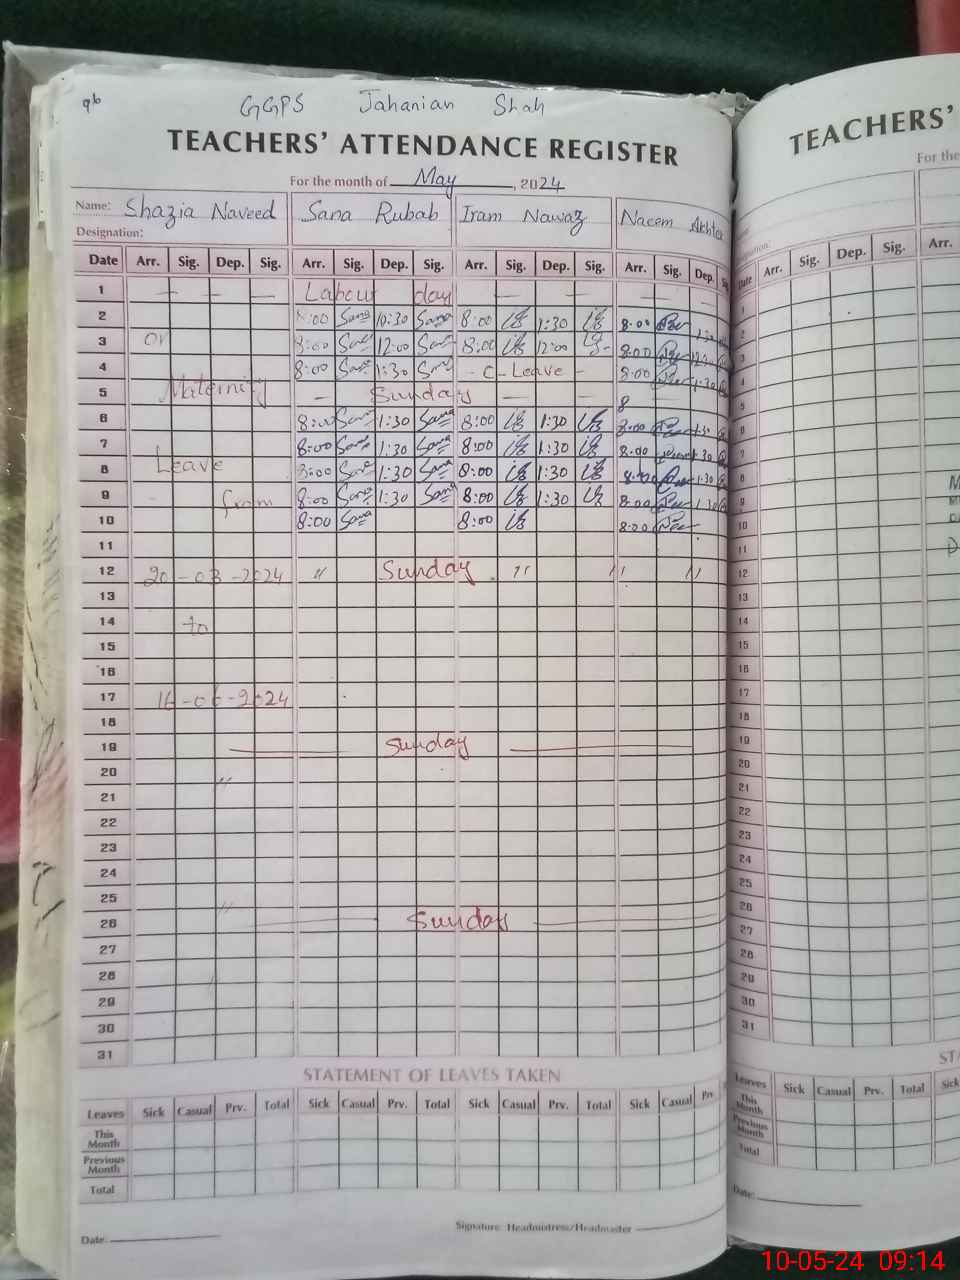 96
GGPS Jahanian Shah
TEACHERS' ATTENDANCE REGISTER
For the month of May, 2024
Name: Shazia Naveed Sana Rubab Iram Nawaz Naeem Akhter
Designation:
Date Arr. Sig. Dep. Sig. Arr. Sig. Dep. Sig. Arr. Sig. Dep. Sig. Arr. Sig. Dep.
1 — — — Labour day — — — —
2 8:00 Sana 10:30 Sana 8:00 1:30 8:00 1:30
3 on 8:00 Sana 12:00 Sana 8:00 12:00 8:00 12:00
4 8:00 Sana 1:30 Sana - C - Leave - 8:00 1:30
5 Maternity — Sunday — — 8
6 8:00 Sana 1:30 Sana 8:00 1:30 8:00 1:30
7 8:00 Sana 1:30 Sana 8:00 1:30 8:00 1:30
8 Leave 8:00 Sana 1:30 Sana 8:00 1:30 8:00 1:30
9 from 8:00 Sana 1:30 Sana 8:00 1:30 8:00 1:30
10 8:00 Sana 8:00 8:00
11
12 20-03-2024 " Sunday " " "
13
14 to
15
16
17 16-06-2024
18
19 Sunday
20 "
21
22
23
24
25 "
26 Sunday
27
28
29
30
31
STATEMENT OF LEAVES TAKEN
Leaves Sick Casual Prv. Total Sick Casual Prv. Total Sick Casual Prv. Total Sick Casual Prv.
This Month
Previous Month
Total
Signature: Headmistress/Headmaster
Date:
TEACHERS'
For the
Date Arr. Sig. Dep. Sig. Arr.
1
2
3
4
5
6
7
8
9
10
11
12
13
14
15
16
17
18
19
20
21
22
23
24
25
26
27
28
29
30
31
Leaves Sick Casual Prv. Total Sick
This Month
Previous Month
Total
Date:
10-05-24 09:14